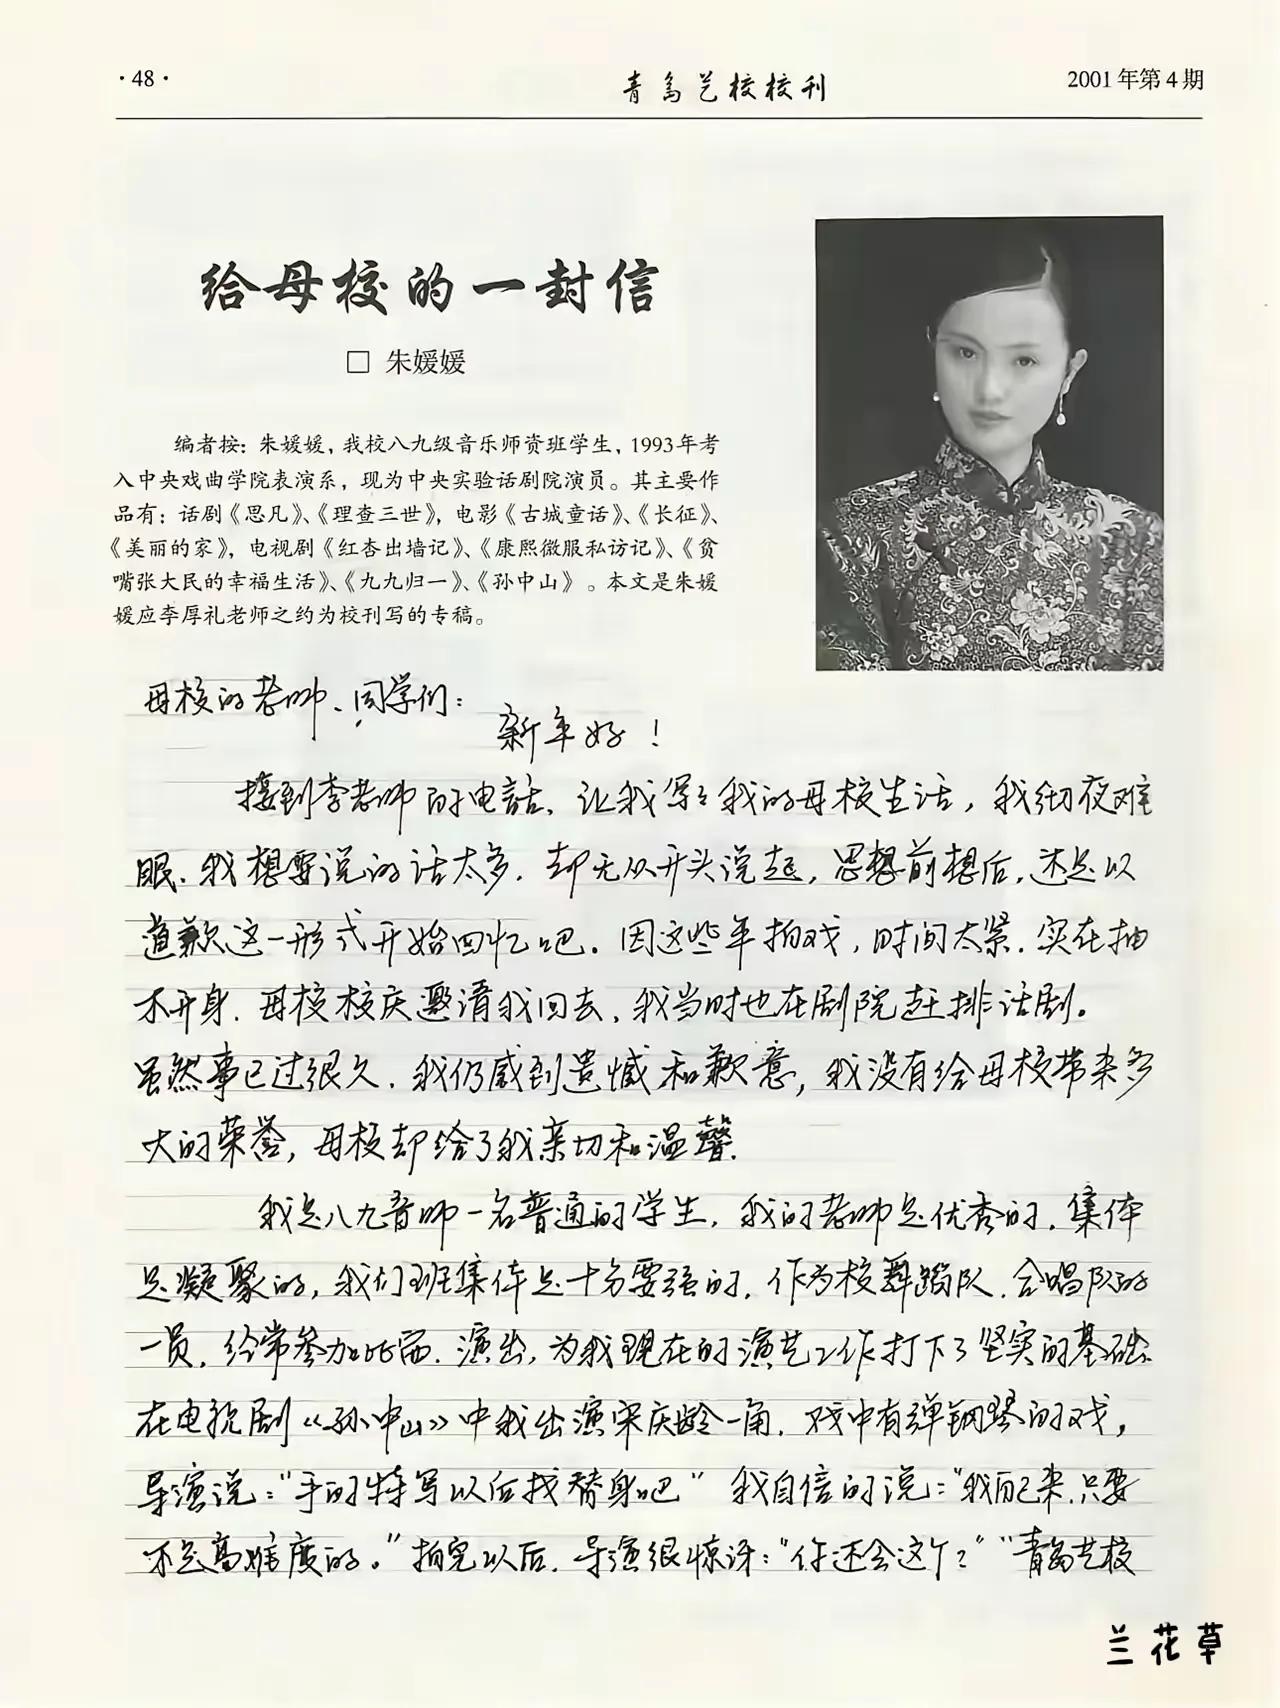 ·48·
青岛艺校校刊
2001年第4期
给母校的一封信
□ 朱媛媛
编者按：朱媛媛，我校八九级音乐师资班学生，1993年考
入中央戏曲学院表演系，现为中央实验话剧院演员。其主要作
品有：话剧《思凡》、《理查三世》，电影《古城童话》、《长征》、
《美丽的家》，电视剧《红杏出墙记》、《康熙微服私访记》、《贫
嘴张大民的幸福生活》、《九九归一》、《孙中山》。本文是朱媛
媛应李厚礼老师之约为校刊写的专稿。
母校的老师、同学们：
新年好！
接到李老师的电話、让我写写我的母校生活，我彻夜难
眠、我想要说的话太多．却无从开头说起，思想前想后，还是以
道歉这一形式开始回忆吧．因这些年拍戏，时间太紧．实在抽
不开身．母校校庆邀请我回去，我当时也在剧院赶排话剧。
虽然事已过很久．我仍感到遗憾和歉意，我没有给母校带来多
大的荣誉，母校却给了我亲切和温馨．
我是八九音师一名普通的学生，我的老师是优秀的．集体
是凝聚的，我们班集体是十分要强的．作为校舞蹈队．合唱队的
一员．经常参加比赛．演出，为我现在的演艺工作打下了坚实的基础．
在电视剧《孙中山》中我出演宋庆龄一角．戏中有弹钢琴的戏，
导演说："手的特写以后找替身吧" 我自信的说："我自己来．只要
不是高难度的。"拍完以后．导演很惊讶："你还会这个？" "青岛艺校
兰花草